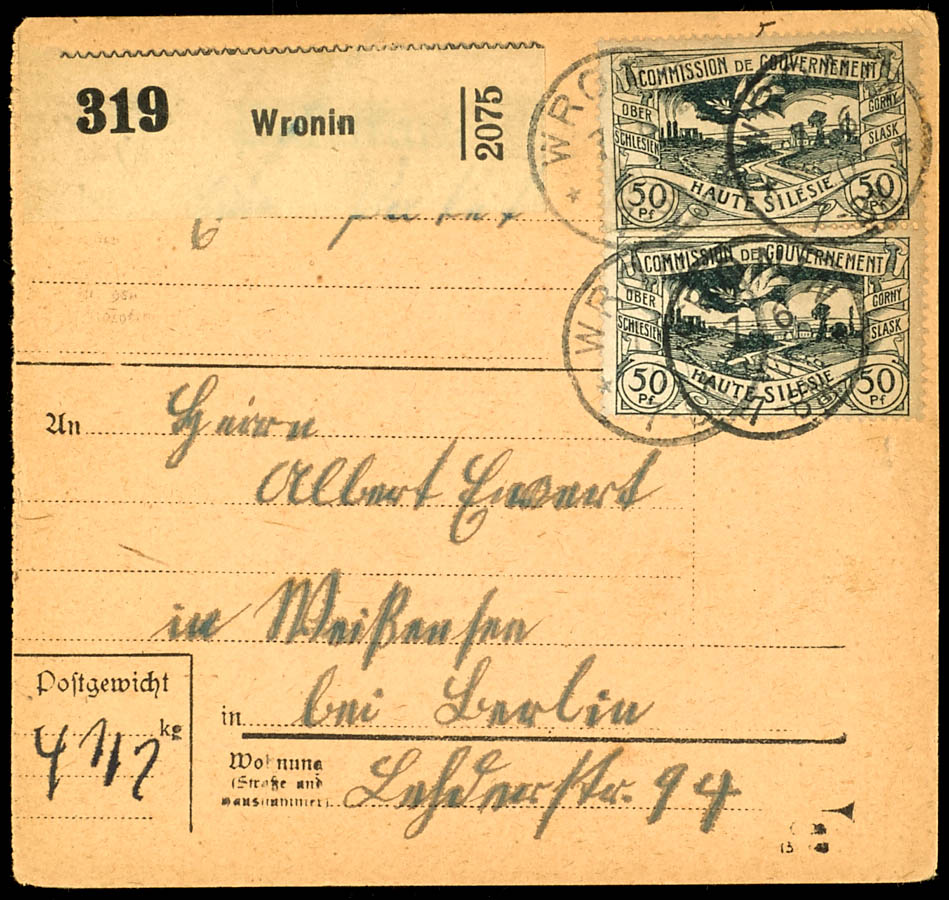 319 Wronin 2075
COMMISSION DE GOUVERNEMENT
OBER SCHLESIEN
GORNY SLASK
HAUTE SILESIE
50 Pf 50 Pf
COMMISSION DE GOUVERNEMENT
OBER SCHLESIEN
GORNY SLASK
HAUTE SILESIE
50 Pf 50 Pf
An Herrn
Albert Ewert
in Weißensee
Postgewicht
4 1/2 kg
in bei Berlin
Wohnung
(Straße und
Hausnummer)
Lehderstr. 94